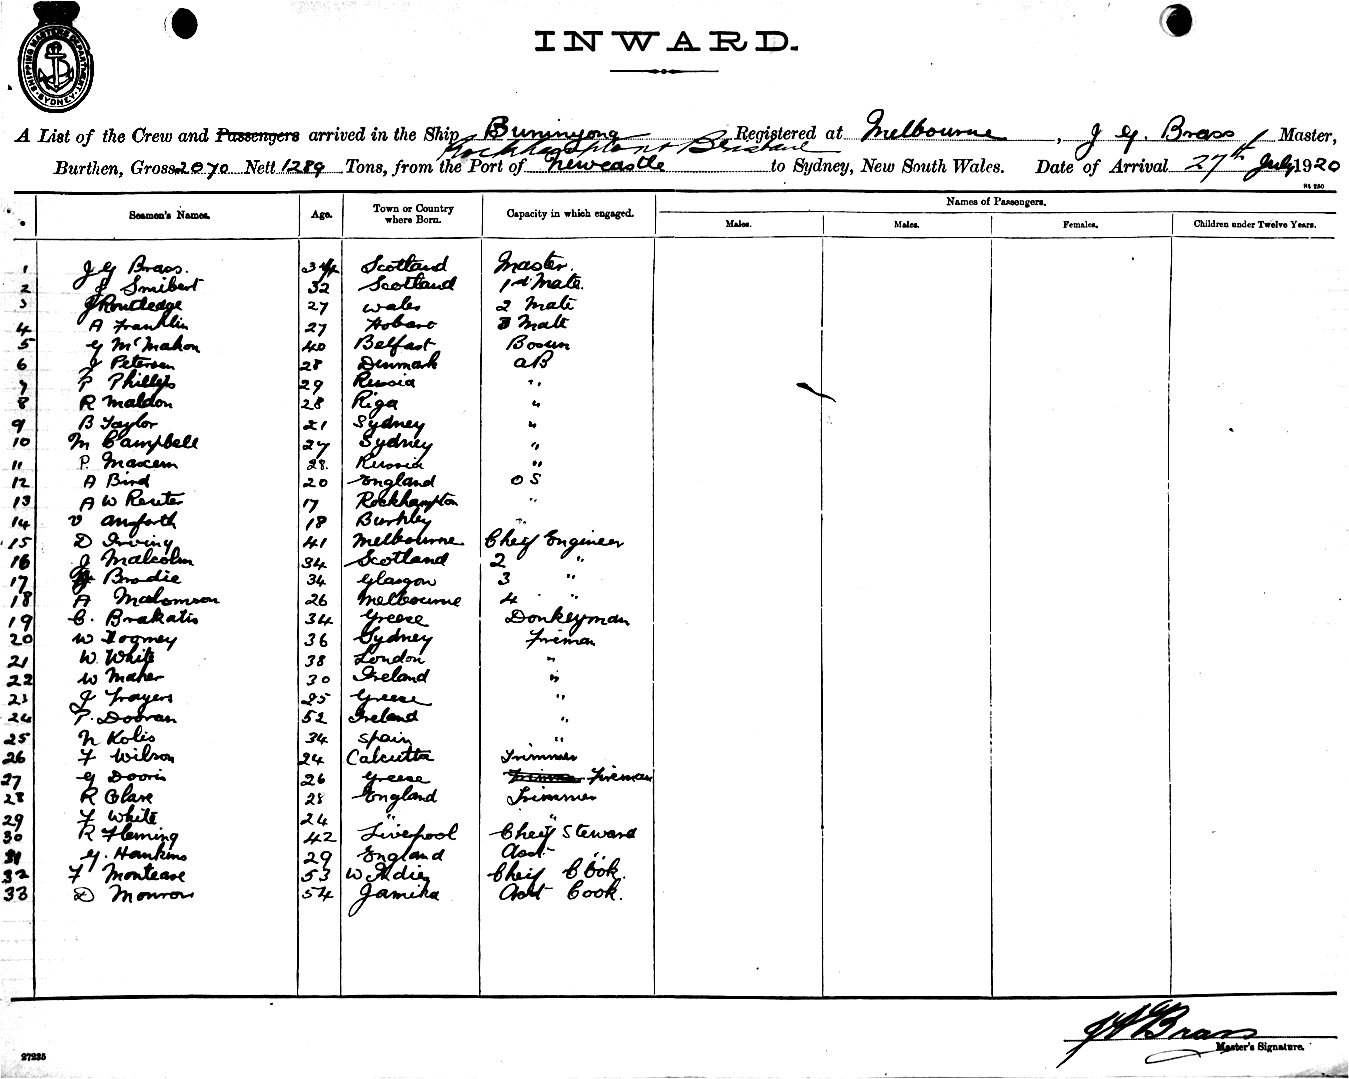 SHIPPING MASTER'S DEPARTMENT
SYDNEY
INWARD.
A List of the Crew and Passengers arrived in the Ship Buninyong Registered at Melbourne, J G. Brass Master,
Rockhampton & Brisbane
Burthen, Gross 2070 Nett 1289 Tons, from the Port of Newcastle to Sydney, New South Wales. Date of Arrival 27th July 1920
Seamen's Names. Age. Town or Country where Born. Capacity in which engaged. Names of Passengers.
Males. Males. Females. Children under Twelve Years.
1 J G Brass. 34 Scotland Master.
2 J Smibert 32 Scotland 1st Mate.
3 J Routledge 27 Wales 2 Mate
4 A Franklin 27 Hobart 3 Mate
5 G McMahon 40 Belfast Bosun
6 J Petersen 28 Denmark AB
7 P Phillips 29 Russia "
8 R Maldon 28 Riga "
9 B Taylor 21 Sydney "
10 M Campbell 27 Sydney "
11 P. 28. Russia "
12 A Bird 20 England O S
13 A W Reuter 17 Rockhampton "
14 V 18 "
15 D Irving 41 Melbourne Cheif Engineer
16 J Malcolm 34 Scotland 2 "
17 Brodie 34 Glasgow 3 "
18 A Malomson 26 Melbourne 4 "
19 C. Brakatis 34 Greese Donkeyman
20 W Toomey 36 Sydney Fireman
21 W. White 38 London "
22 W Maher 30 Ireland "
23 J Frayers 25 Greese "
24 P. Dooran 52 Ireland "
25 N Kolis 34 Spain "
26 F Wilson 24 Calcutta Trimmer
27 G Dooris 26 Greese Fireman
28 R Clare 28 England Trimmer
29 F White 24 " "
30 R Fleming 42 Liverpool Cheif Steward
31 G. Hankins 29 England Asst "
32 F Monteare 53 W Indies Cheif Cook.
33 D Monroe 54 Jamika Asst Cook.
J G Brass
Master's Signature.
27235